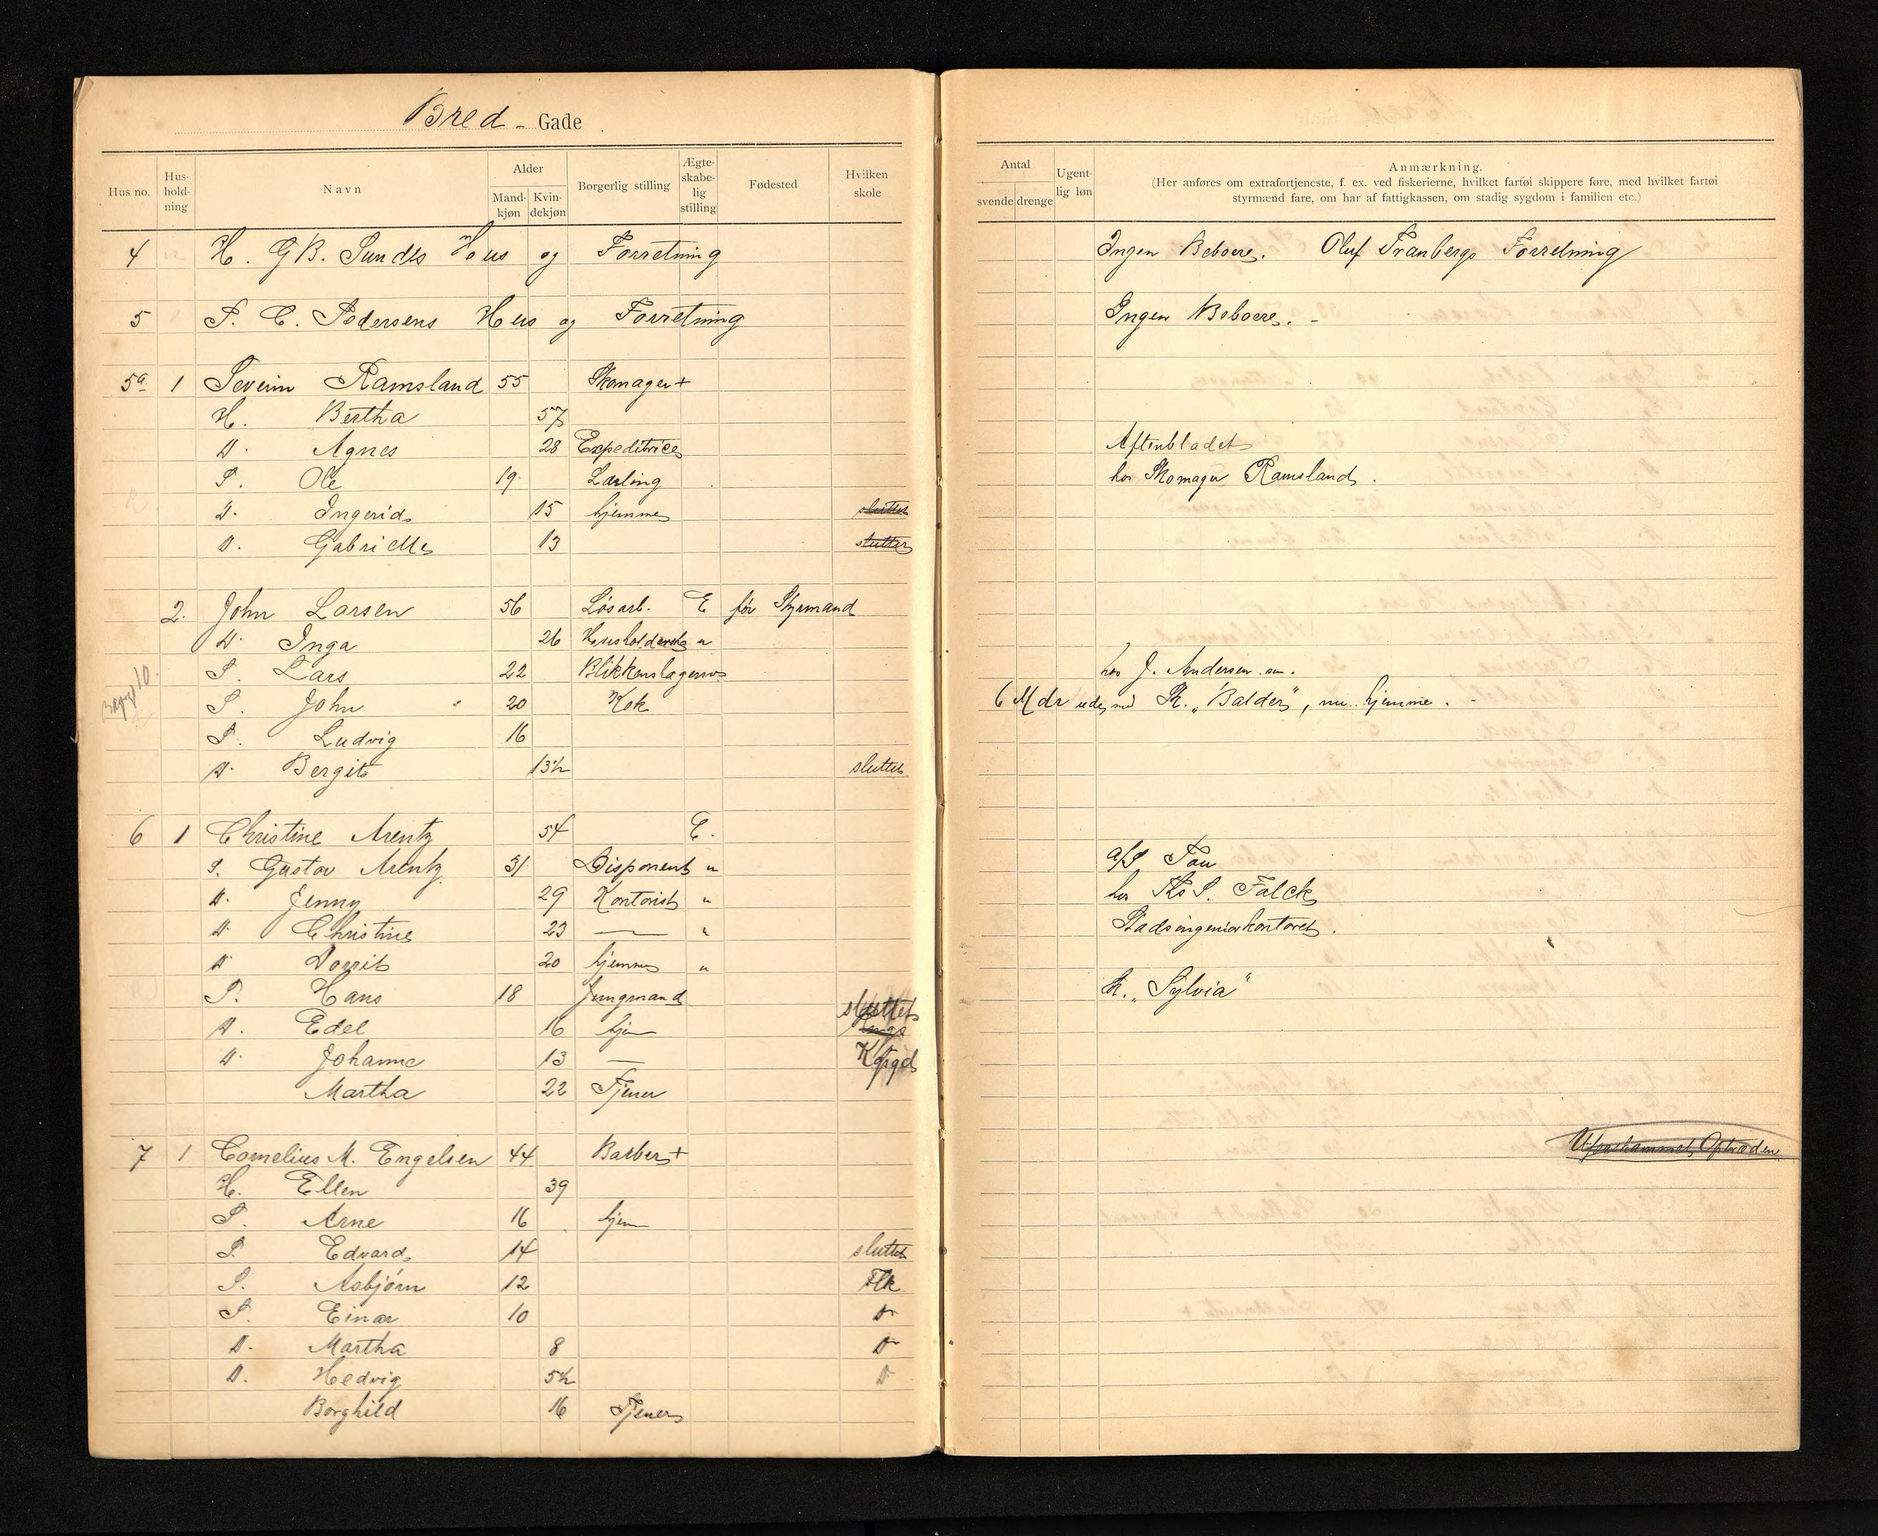 Bred - Gade
Hus no. Hus-holdning Navn Alder Mandkjøn Kvindekjøn Borgerlig stilling Ægteskabelig stilling Fødested Hvilken skole
Antal svende drenge Ugentlig løn Anmærkning.
(Her anføres om extrafortjeneste, f. ex. ved fiskerierne, hvilket fartøi skippere føre, med hvilket fartøi
styrmænd fare, om har af fattigkassen, om stadig sygdom i familien etc.)
4 H. G B. Sundts Hus og Forretning Ingen Beboere. Oluf Tranbergs Forretning
5 P. C. Pedersens Hus og Forretning Ingen Beboere. -
5a 1 Severin Ramsland 55 Skomager +
H. Bertha 57
D. Agnes 28 Expeditrice Aftenbladet
S. Ole 19 Lærling hos Skomager Ramsland.
D. Ingerid 15 hjemme sluttet
D. Gabrielle 13 sluttet
2. John Larsen 56 Løsarb. E før Styrmand
D. Inga 26 Husholderske "
S. Lars 22 Blikkenslagersv hos J. Andersen sen.
S. John 20 Kok 6 Mdr ude med Sk. "Balder", nu hjemme. -
S. Ludvig 16
D. Bergit 13½ sluttet
6 1 Christine Arentz 54 E.
S. Gustav Arentz 31 Disponent " a/S Tou
D. Jenny 29 Kontorist " hos Ths S. Falck
D. Christine 23 — " Stadsingeniørkontoret.
D. Dorrit 20 hjemme "
S. Hans 18 Jungmand Sk. "Sylvia"
D. Edel 16 hjem sluttet
D. Johanne 13 — Kgsgd
Martha 22 Tjener
7 1 Cornelius M. Engelsen 44 Barber + Uforskammet Optræden
H. Ellen 39
S. Arne 16 hjem
S. Edvard 14 sluttet
S. Asbjørn 12 Flk
S. Einar 10 D
D. Martha 8 D
D. Hedvig 5½ D
Borghild 16 Tjener